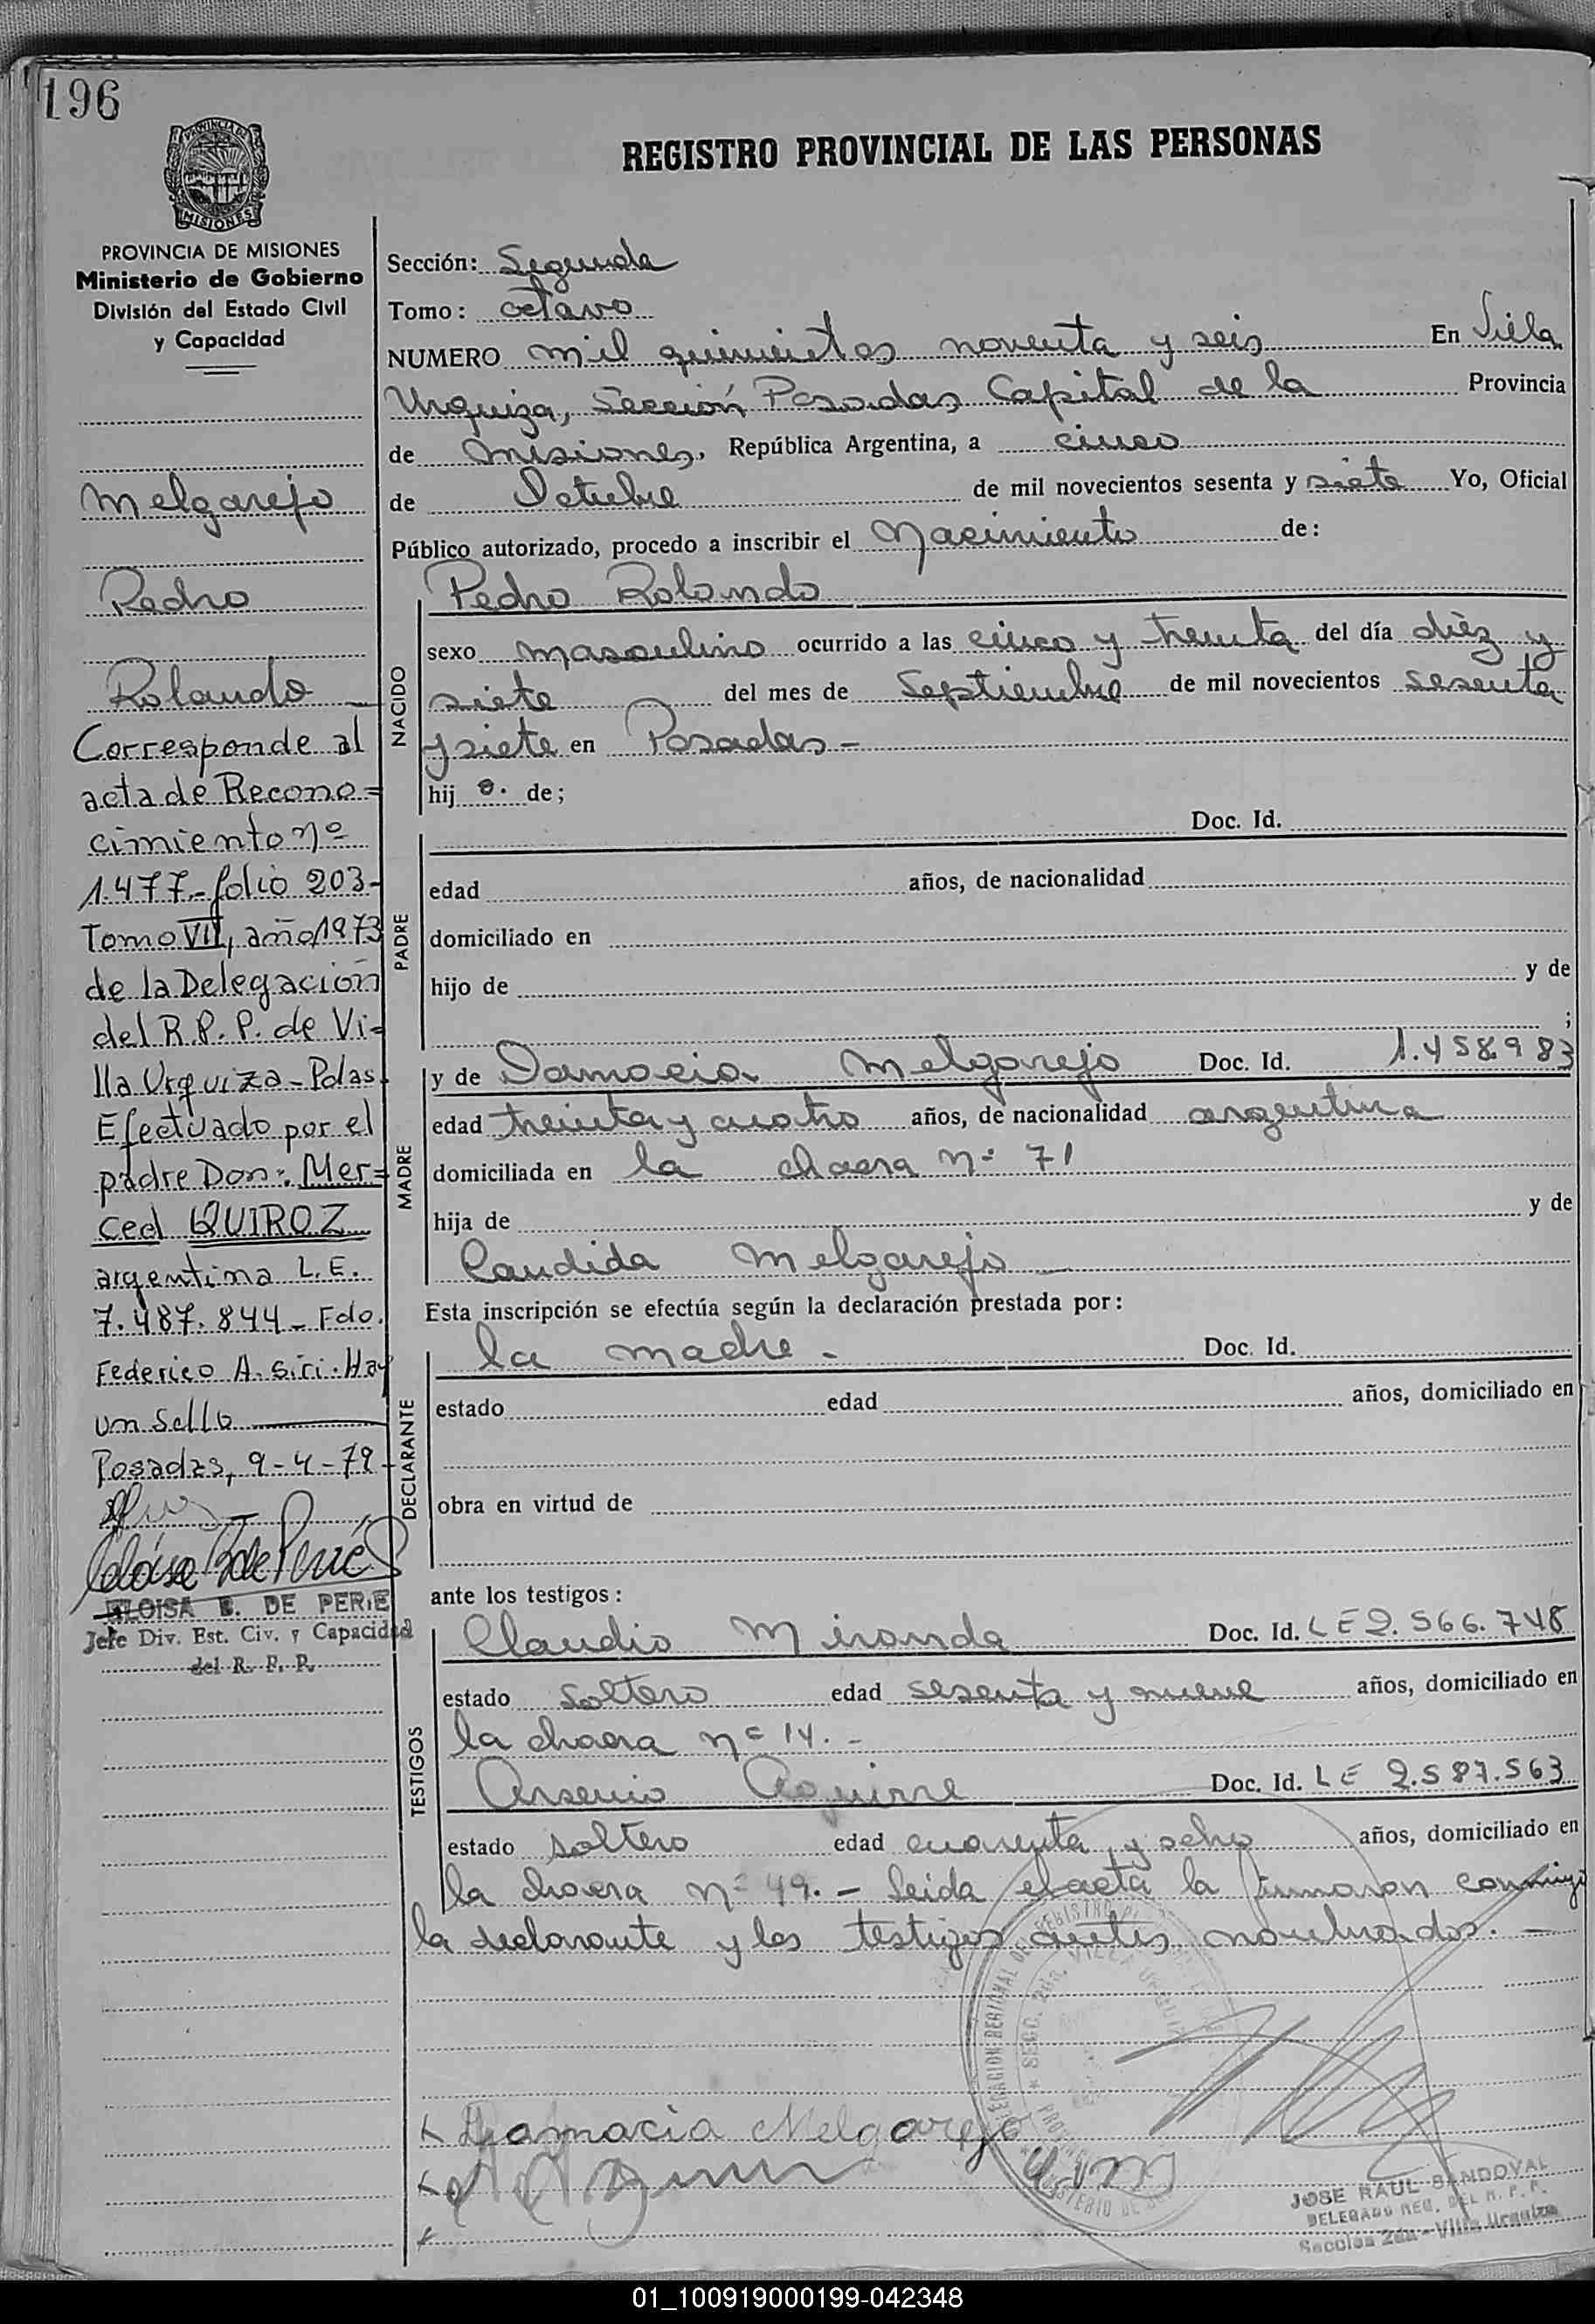 196
PROVINCIA DE
MISIONES
REGISTRO PROVINCIAL DE LAS PERSONAS
PROVINCIA DE MISIONES
Ministerio de Gobierno
División del Estado Civil
y Capacidad
Melgarejo
Pedro
Rolando
Corresponde al
acta de Recono=
cimiento nº
1.477-folio 203-
Tomo VII, año 1973
de la Delegación
del R.P.P. de Vi=
lla Urquiza-Pdas.
Efectuado por el
padre Don: Mer=
ced QUIROZ
argentina L.E.
7.487.844- Fdo.
Federico A. Siri. Hay
un sello
Posadas, 9-4-79
ELOISA B. DE PERIE
Jefe Div. Est. Civ. y Capacidad
del R. P. P.
Sección: Segunda
Tomo: octavo
NUMERO mil quinientos noventa y seis En Villa
Urquiza, Sección Posadas Capital de la Provincia
de Misiones, República Argentina, a cinco
de Octubre de mil novecientos sesenta y siete Yo, Oficial
Público autorizado, procedo a inscribir el Nacimiento de:
NACIDO
Pedro Rolando
sexo masculino ocurrido a las cinco y treinta del día diez y
siete del mes de Septiembre de mil novecientos sesenta
y siete en Posadas-
hij o. de;
PADRE
Doc. Id.
edad años, de nacionalidad
domiciliado en
hijo de y de
;
MADRE
y de Damacia Melgarejo Doc. Id. 1.458.983
edad treinta y cuatro años, de nacionalidad argentina
domiciliada en la chacra nº 71
hija de y de
Candida Melgarejo
Esta inscripción se efectúa según la declaración prestada por:
DECLARANTE
la madre.- Doc. Id.
estado edad años, domiciliado en
obra en virtud de
ante los testigos:
TESTIGOS
Claudio Miranda Doc. Id. LE 2.566.748
estado soltero edad sesenta y nueve años, domiciliado en
la chacra nº 14.-
Arsenio Aguirre Doc. Id. LE 2.587.563
estado soltero edad cuarenta y ocho años, domiciliado en
la chacra nº 49.- Leida el acta la firmaron conmigo
la declarante y los testigos antes nombrados.-
Damacia Melgarejo
JOSE RAUL SANDOVAL
DELEGADO REG. DEL R. P. P.
Sección 2da - Villa Urquiza
01_100919000199-042348